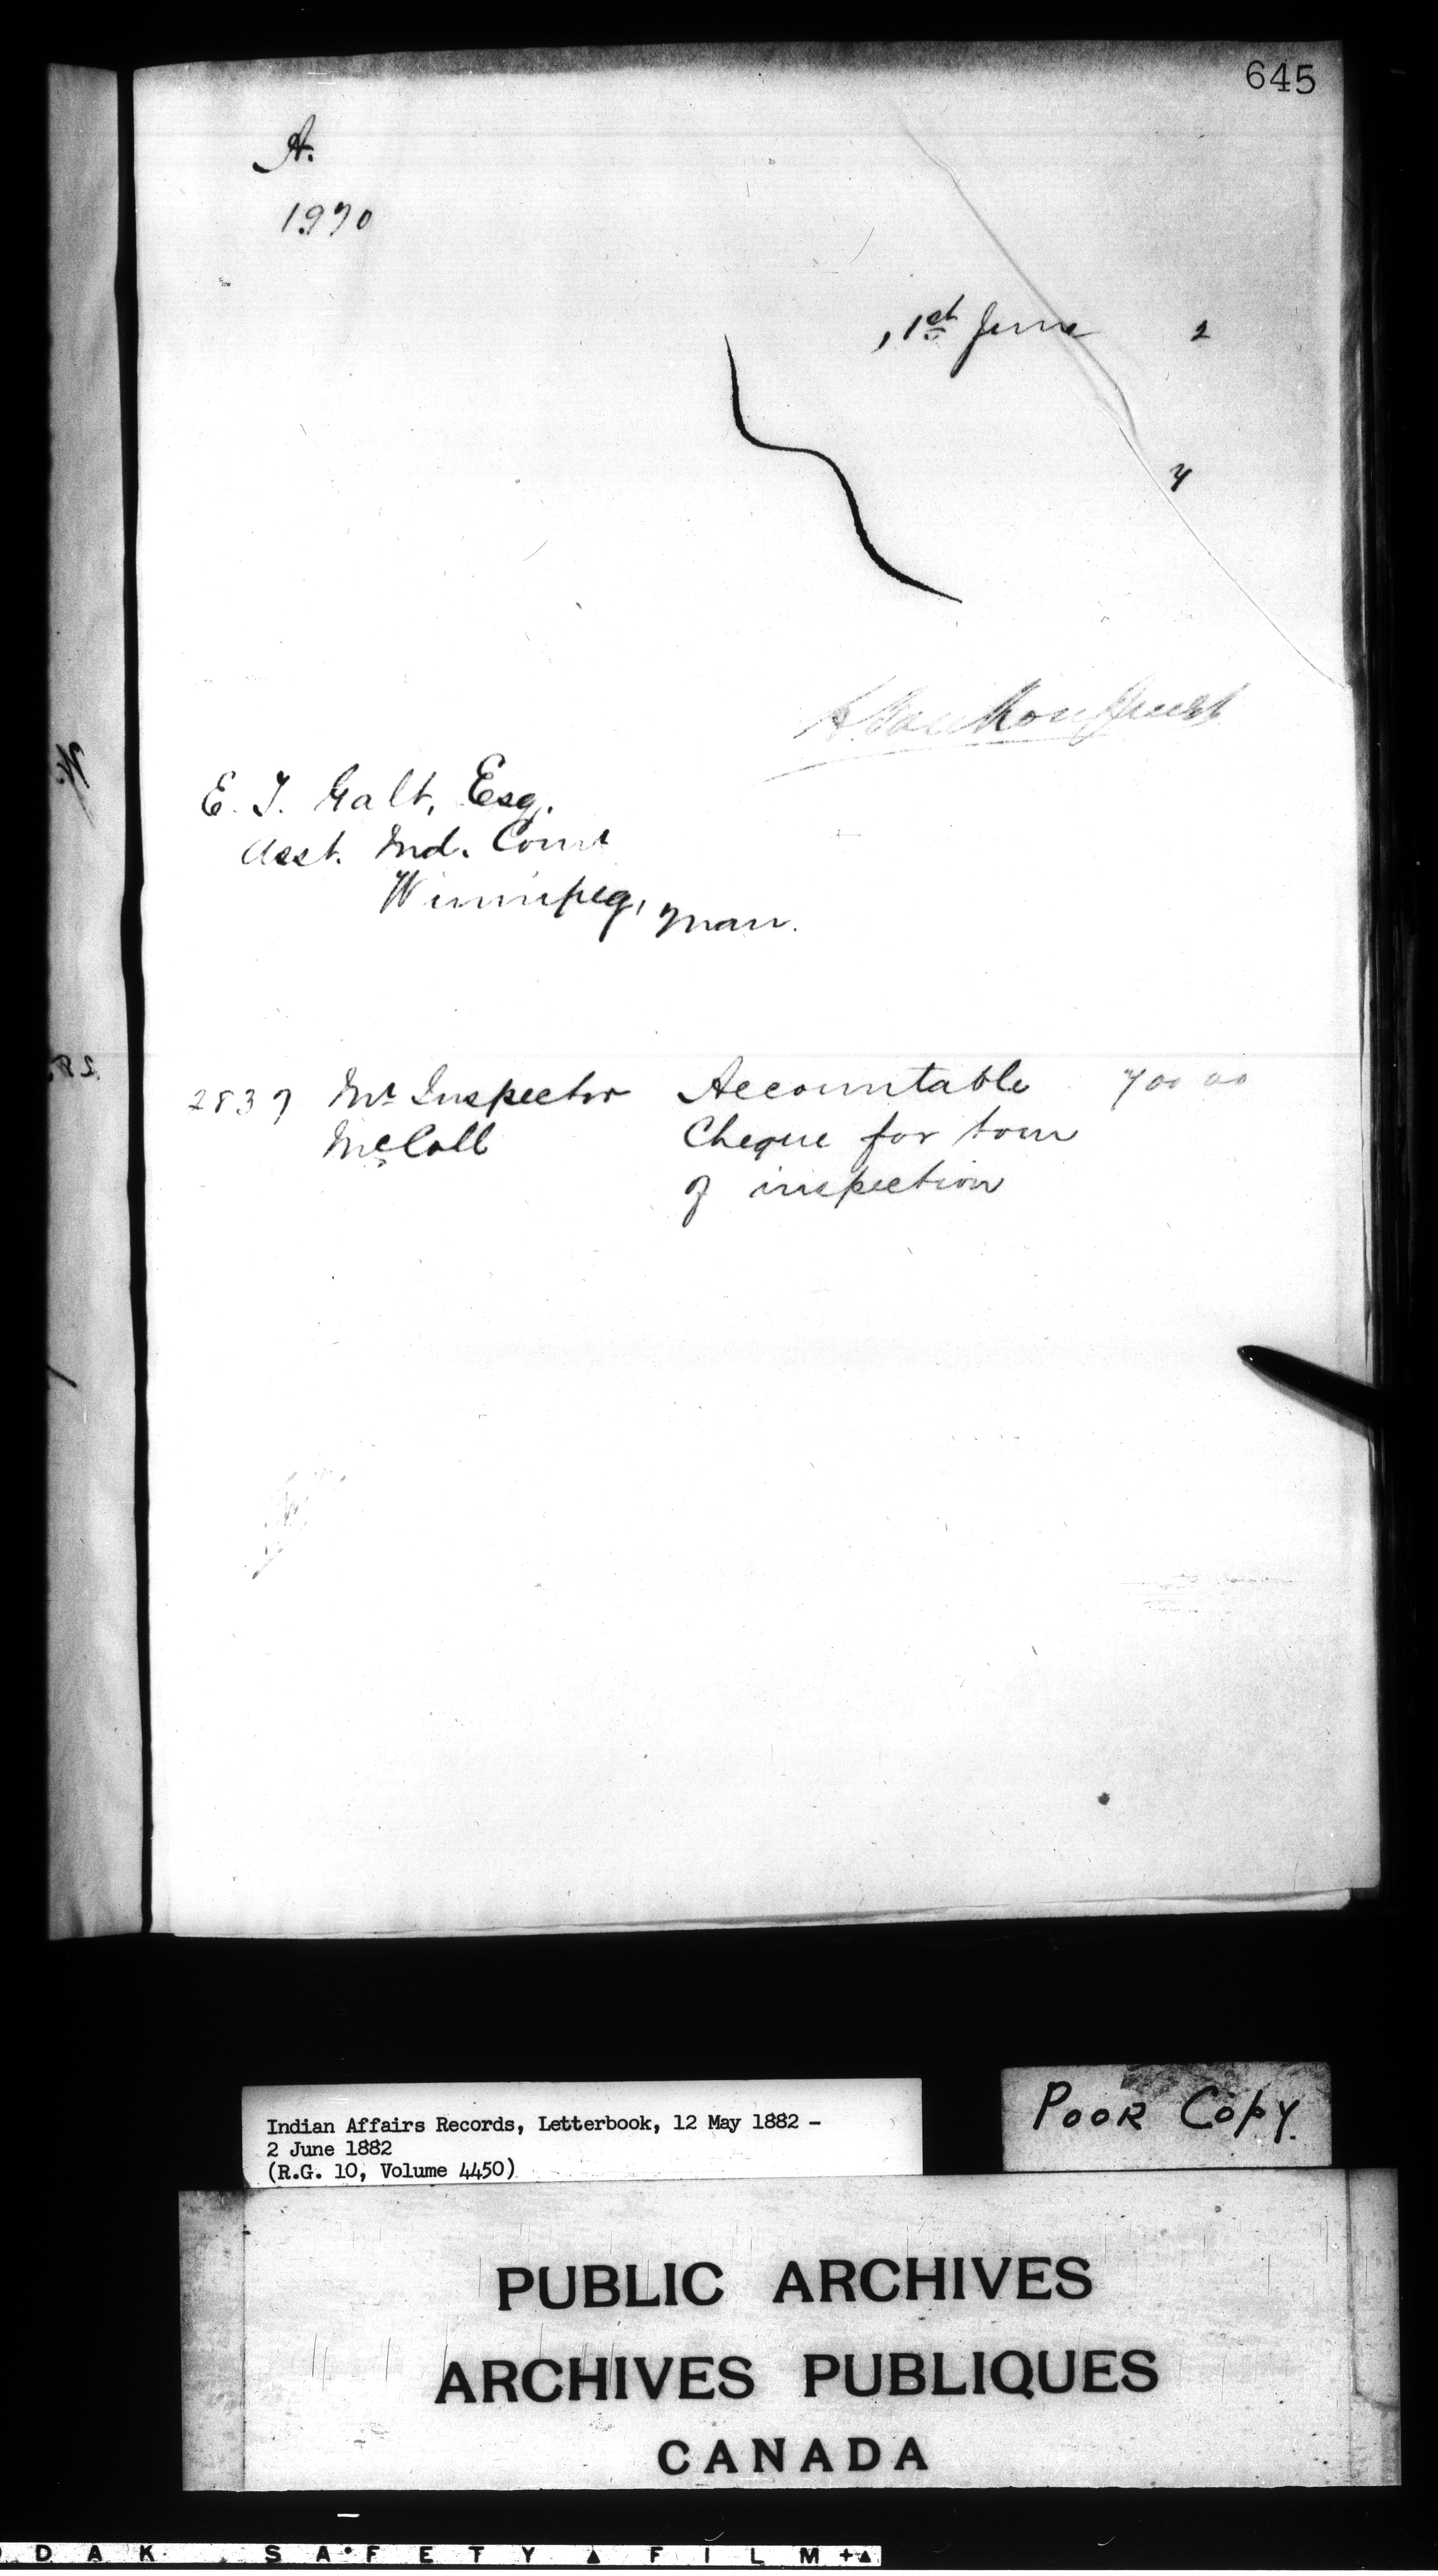 645
A.
1970
, 1st June 2
4
E. T. Galt, Esq.
Asst. Ind. Comr
Winnipeg, Man.
2837 Mr Inspector Accountable 700 00
McColl Cheque for tour
of inspection
Indian Affairs Records, Letterbook, 12 May 1882 -
2 June 1882
(R.G. 10, Volume 4450)
POOR COPY.
PUBLIC ARCHIVES
ARCHIVES PUBLIQUES
CANADA
DAK SAFETY FILM